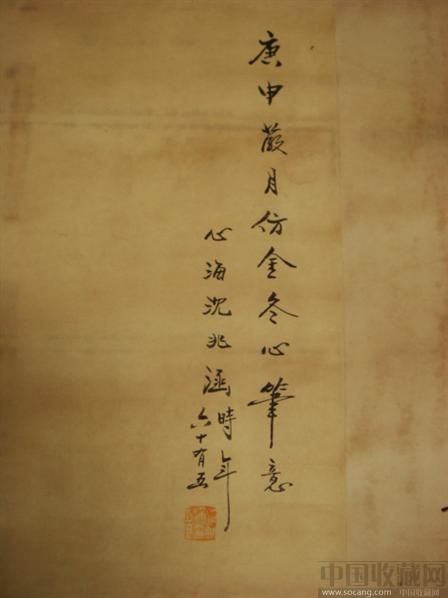 庚申葭月仿金冬心筆意
心海沈兆涵時年六十有五
中国收藏网
www.socang.com 中国收藏网